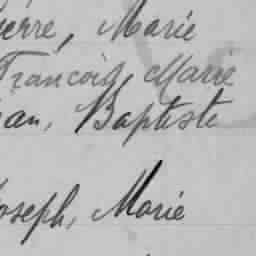 ierre, Marie
François, Marie
ean, Baptiste
Joseph, Marie